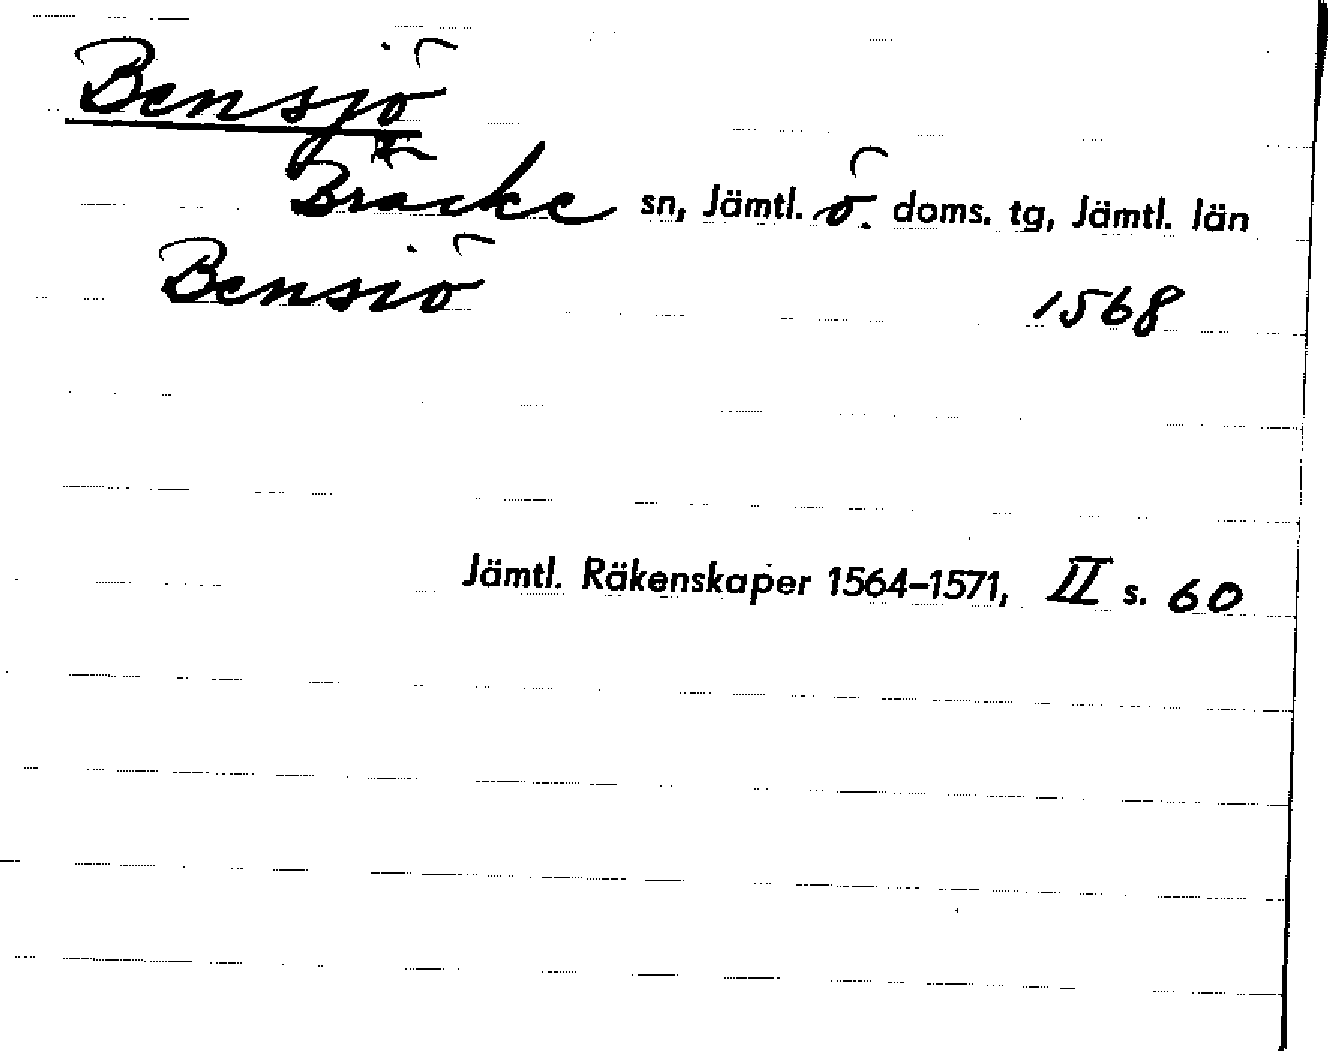 Bensjö
Bräcke sn, Jämtl. ö. doms. tg, Jämtl. län
Bensiö 1568
Jämtl. Räkenskaper 1564-1571, II s. 60